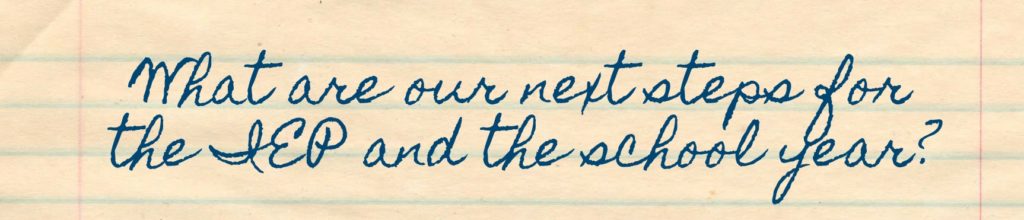 What are our next steps for
the IEP and the school year?